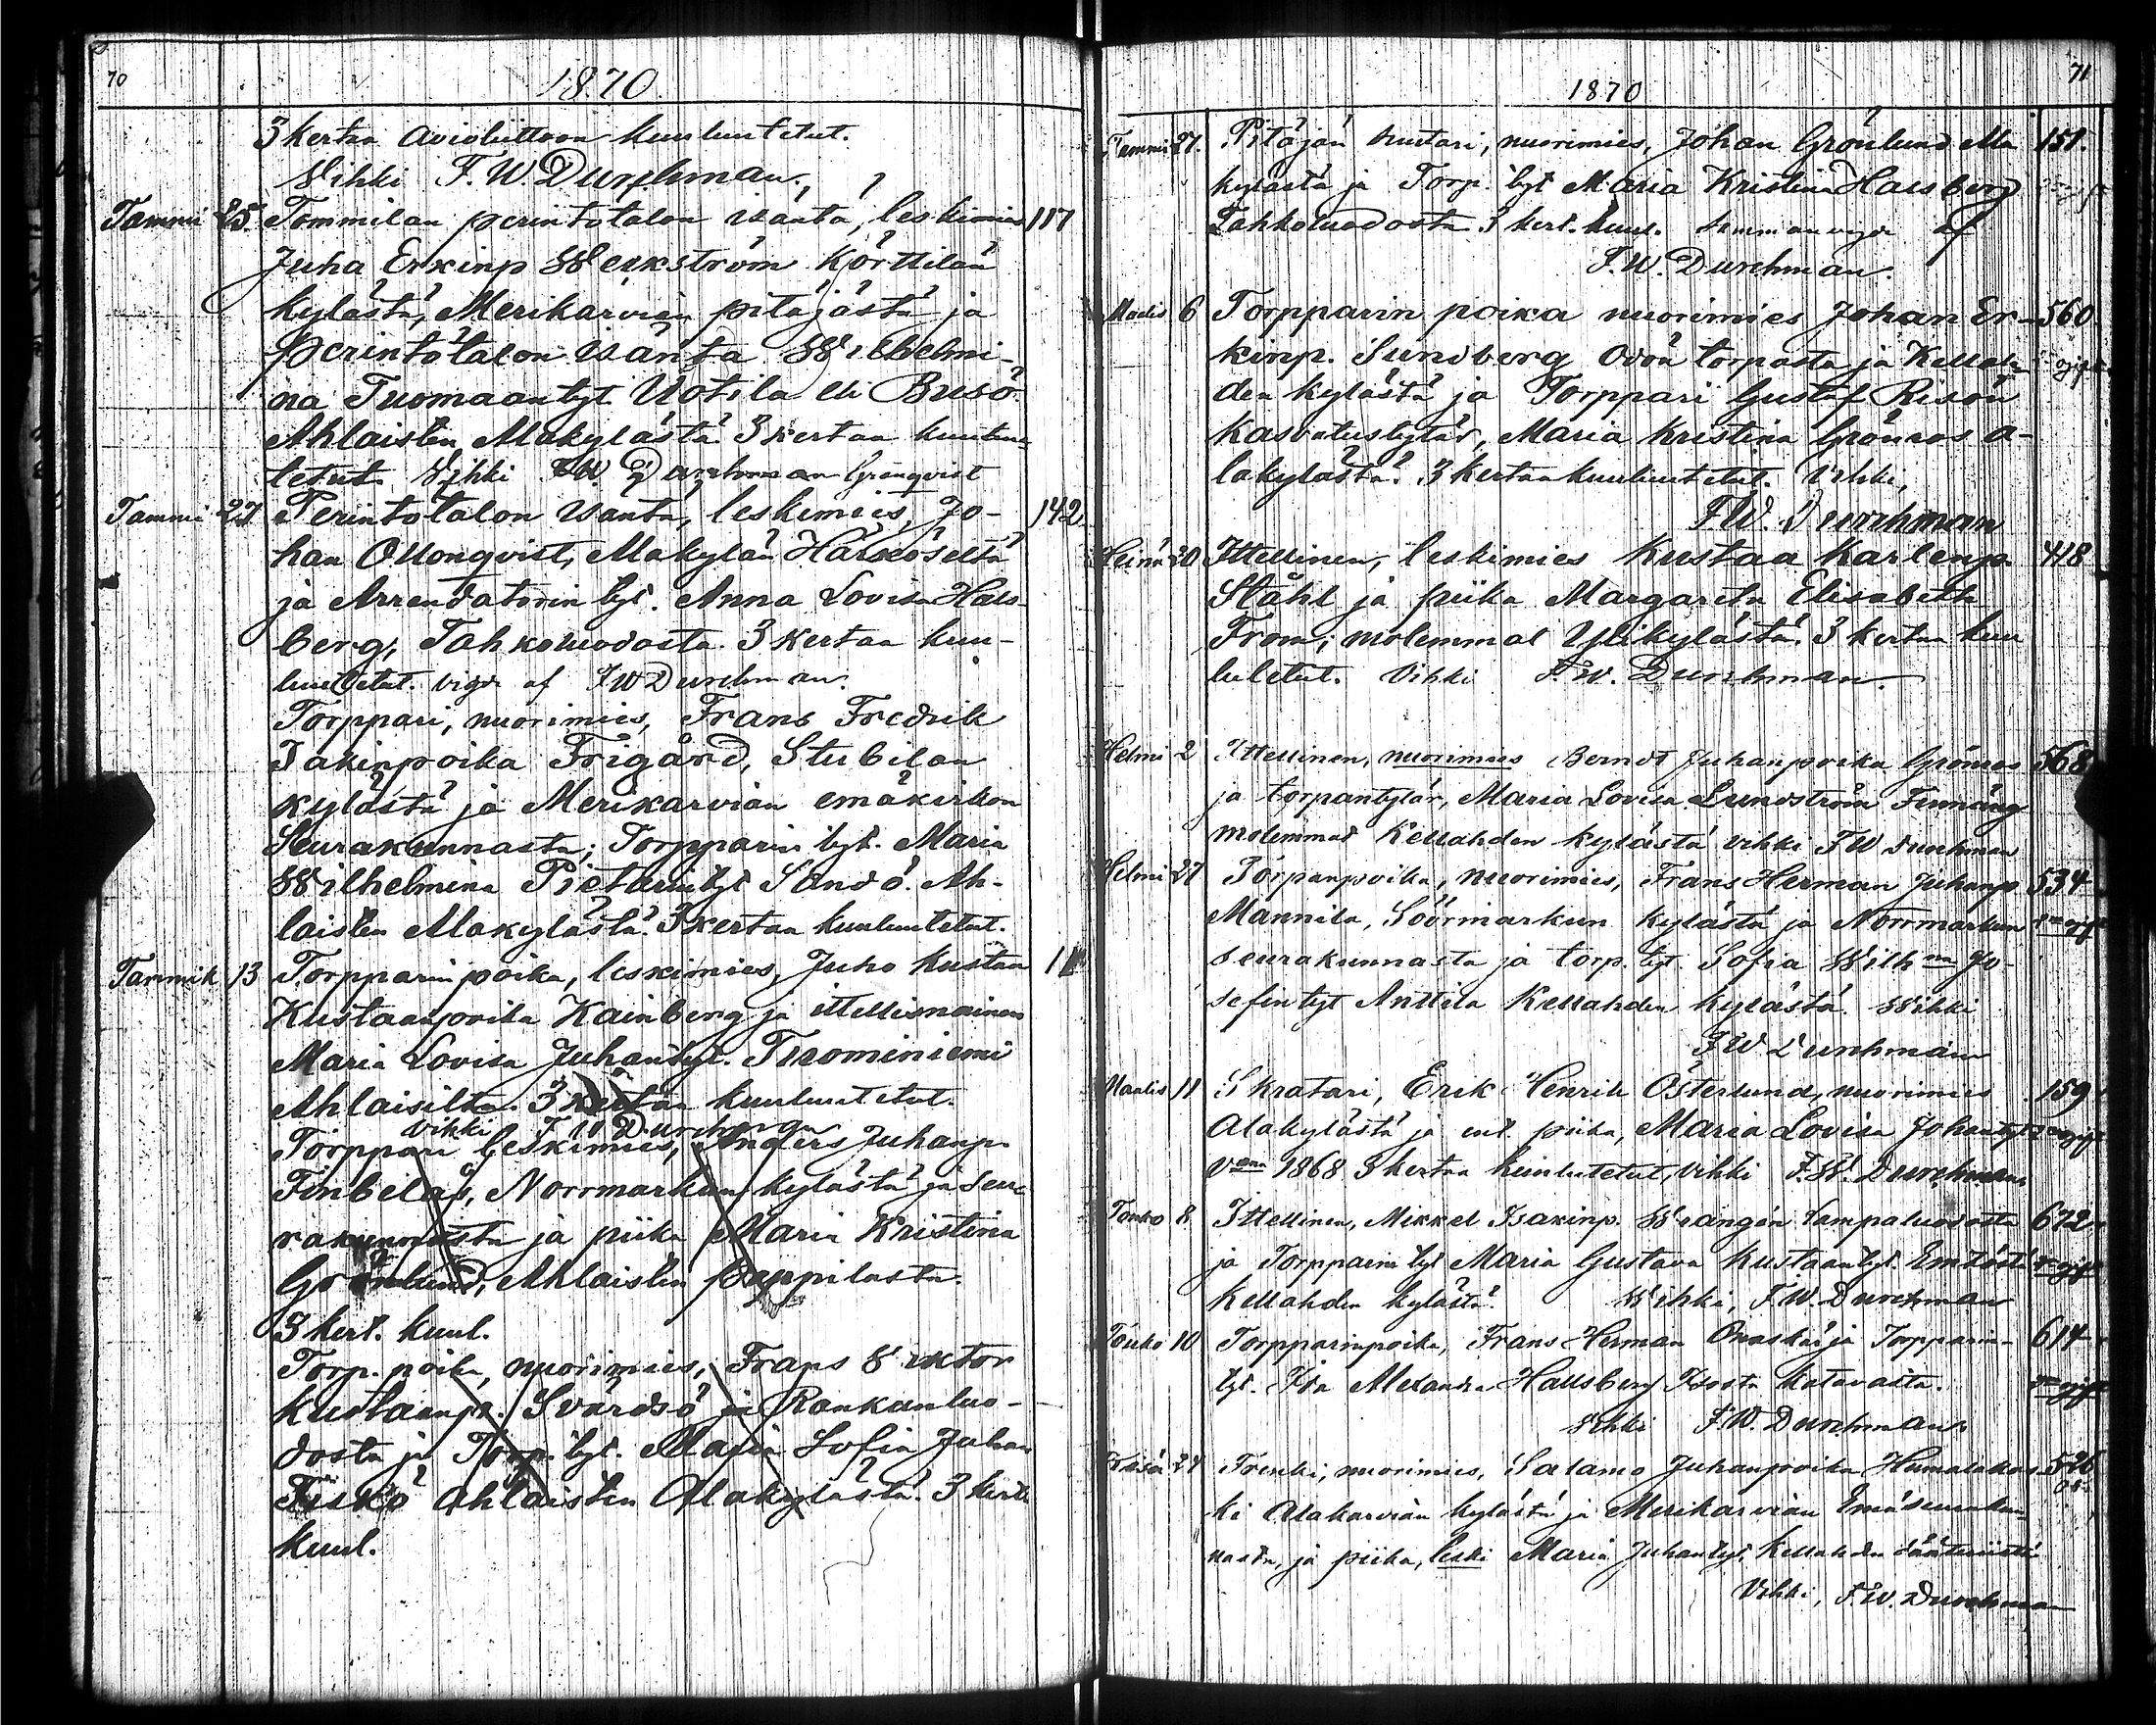 70
1870
3 kertaa avioliittoon kuulutetut.
Vihki F. W. Durchman.
Tammi 25 Tommilan perintötalon isäntä, leskimies 117
Juha Erkinp Weckström Körttilän
kylästä, Merikarvian pitäjästä ja
perintötalon isäntä Wilhelmi-
na Tuomaantyt Uotila eli Busö
Ahlaisten Alakylästä 3 kertaa kuulu-
tetut. Vihki F W Durchman Granqvist
Tammi 27 Perintötalon isäntä, leskimies, Jo- 142
han Ollonqvist, Alakylän
ja Arrendatorin tyt. Anna Lovisa Hals-
berg, Tahkoluodosta. 3 kertaa kuu-
lutetut. vigde af F W Durchman.
Torppari, nuorimies, Frans Fredrik
Isakinpoika Frigård, Stubilan
kylästä ja Merikarvian emäkirkon
Seurakunnasta; Torpparin tyt. Maria
Wilhelmina Pietarintyt Sandö. Ah-
laisten Alakylästä. 3 kertaa kuulutetut.
Tammik 13 Torpparinpoika, leskimies, Juho Kustaa
Kustaanpoika Kainberg ja ittellisnainen
Maria Lovisa Juhantyt. Tuominiemi
Ahlaisilta. 3 kertaa kuulutetut.
Vihki F. W Durchman
Torppari leskimies, Anders Juhanp.
Finbelås, Norrmarkun kylästä ja seu-
rakunnasta ja piika Maria Kristina
Grönlund, Ahlaisten pappilasta.
3 kert. kuul.
Torp. poika, nuorimies, Frans Viktor
Kustaanp. Svärdsö ja Rankanluo-
dosta ja Torp. tyt. Maria Sofia Juhan
Fiskö Ahlaisten Alakylästä. 3 kert
kuul.
71
1870
Tammi 27. Pitäjän suutari, nuorimies, Johan Grönlund Ala 151.
kylästä ja Torp. tyt Maria Kristina Halsberg
Tahkoluodosta 3 kert. kuul. Sammanvigde af
F. W. Durchman.
Maalis 6 Torpparin poika nuorimies Johan Er- 560
kinp. Sundberg Odön torpasta ja Kellah-
den kylästä ja Torppari Gustaf Risön
Kasvatustytär, Maria Kristina Grönroos a-
lakylästä. 3 kertaa kuulutetut. Vihki,
F W. Durchman
Heinä 20 Ittellinen, leskimies Kustaa Karlenp. 418
Ståhl ja piika Margareta Elisabeth
From; molemmat Ylikylästä. 3 kertaa kuu
lutetut. Vihki F. W. Durchman.
Helmi 2 Ittellinen, nuorimies Berndt Juhanpoika Grönroos 568
ja torpantytär, Maria Lovisa Lundström
molemmat Kellahden kylästä vihki F W Durchman
Helmi 27 Torpanpoika, nuorimies, Frans Herman Juhanp 534
Mannila, Söörmarkun kylästä ja Norrmarkun
seurakunnasta ja torp. tyt. Sofia Wilhna Jo-
sefintyt Anttila Kellahden kylästä. Wihki
F W Durchman
Maalis 11 Skratari, Erik Henrik Österlund, nuorimies 159
Alakylästä ja ent. piika, Maria Lovisa Johantyt
vna 1868 3 kertaa kuulutetut, vihki F. W. Durchman
Touko 8 Ittellinen, Mikkel Isakinp. Wrangen Lampaluodosta 672
ja Torpparin tyt Maria Gustava Kustaantyt.
Kellahden kylästä. Wihki, F. W. Durchman
Touko 10 Torpparinpoika, Frans Herman Onaskäs ja Torpparin- 614
tyt. Ida Alexandra Hallsberg Isosta Katavasta.
Vihki F. W. Durchman.
Kesä 24 Trenki, nuorimies, Salamo Juhanpoika Humalakos- 526
ki Alakarvian kylästä ja Merikarvian Emäseurakun-
nasta, ja piika, leski Maria Juhantyt. Kellahden
Vihki, F. W. Durchman